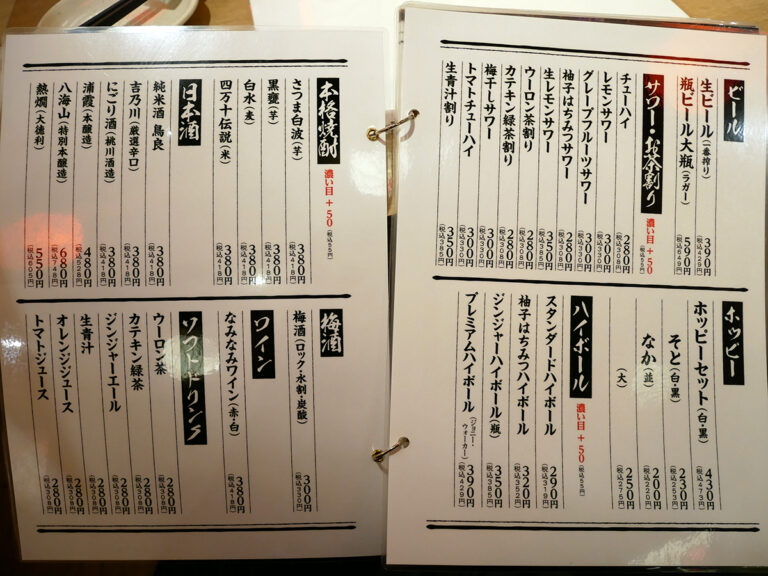 ビール
生ビール(一番搾り) 390円(税込429円)
瓶ビール大瓶(ラガー) 590円(税込649円)
サワー・お茶割り 濃い目+50(税込55円)
チューハイ 280円(税込308円)
レモンサワー 300円(税込330円)
グレープフルーツサワー 300円(税込330円)
柚子はちみつサワー 280円(税込308円)
生レモンサワー 350円(税込385円)
ウーロン茶割り 280円(税込308円)
カテキン緑茶割り 280円(税込308円)
梅干しサワー 300円(税込330円)
トマトチューハイ 300円(税込330円)
生青汁割り 350円(税込385円)
ホッピー
ホッピーセット(白・黒) 430円(税込473円)
そと(白・黒) 230円(税込253円)
なか(並) 200円(税込220円)
(大) 250円(税込275円)
ハイボール 濃い目+50(税込55円)
スタンダードハイボール 290円(税込319円)
柚子はちみつハイボール 320円(税込352円)
ジンジャーハイボール(瓶) 350円(税込385円)
プレミアムハイボール(ジョニー・ウォーカー) 390円(税込429円)
本格焼酎 濃い目+50(税込55円)
さつま白波(芋) 380円(税込418円)
黒甕(芋) 380円(税込418円)
白水(麦) 380円(税込418円)
四万十伝説(米) 380円(税込418円)
日本酒
純米酒 鳥良 380円(税込418円)
吉乃川(厳選辛口) 380円(税込418円)
にごり酒(桃川酒造) 380円(税込418円)
浦霞(本醸造) 480円(税込528円)
八海山(特別本醸造) 680円(税込748円)
熱燗(大徳利) 550円(税込605円)
梅酒
梅酒(ロック・水割・炭酸) 300円(税込330円)
ワイン
なみなみワイン(赤・白) 380円(税込418円)
ソフトドリンク
ウーロン茶 280円(税込308円)
カテキン緑茶 280円(税込308円)
ジンジャーエール 280円(税込308円)
生青汁 280円(税込308円)
オレンジジュース 280円(税込308円)
トマトジュース 280円(税込308円)